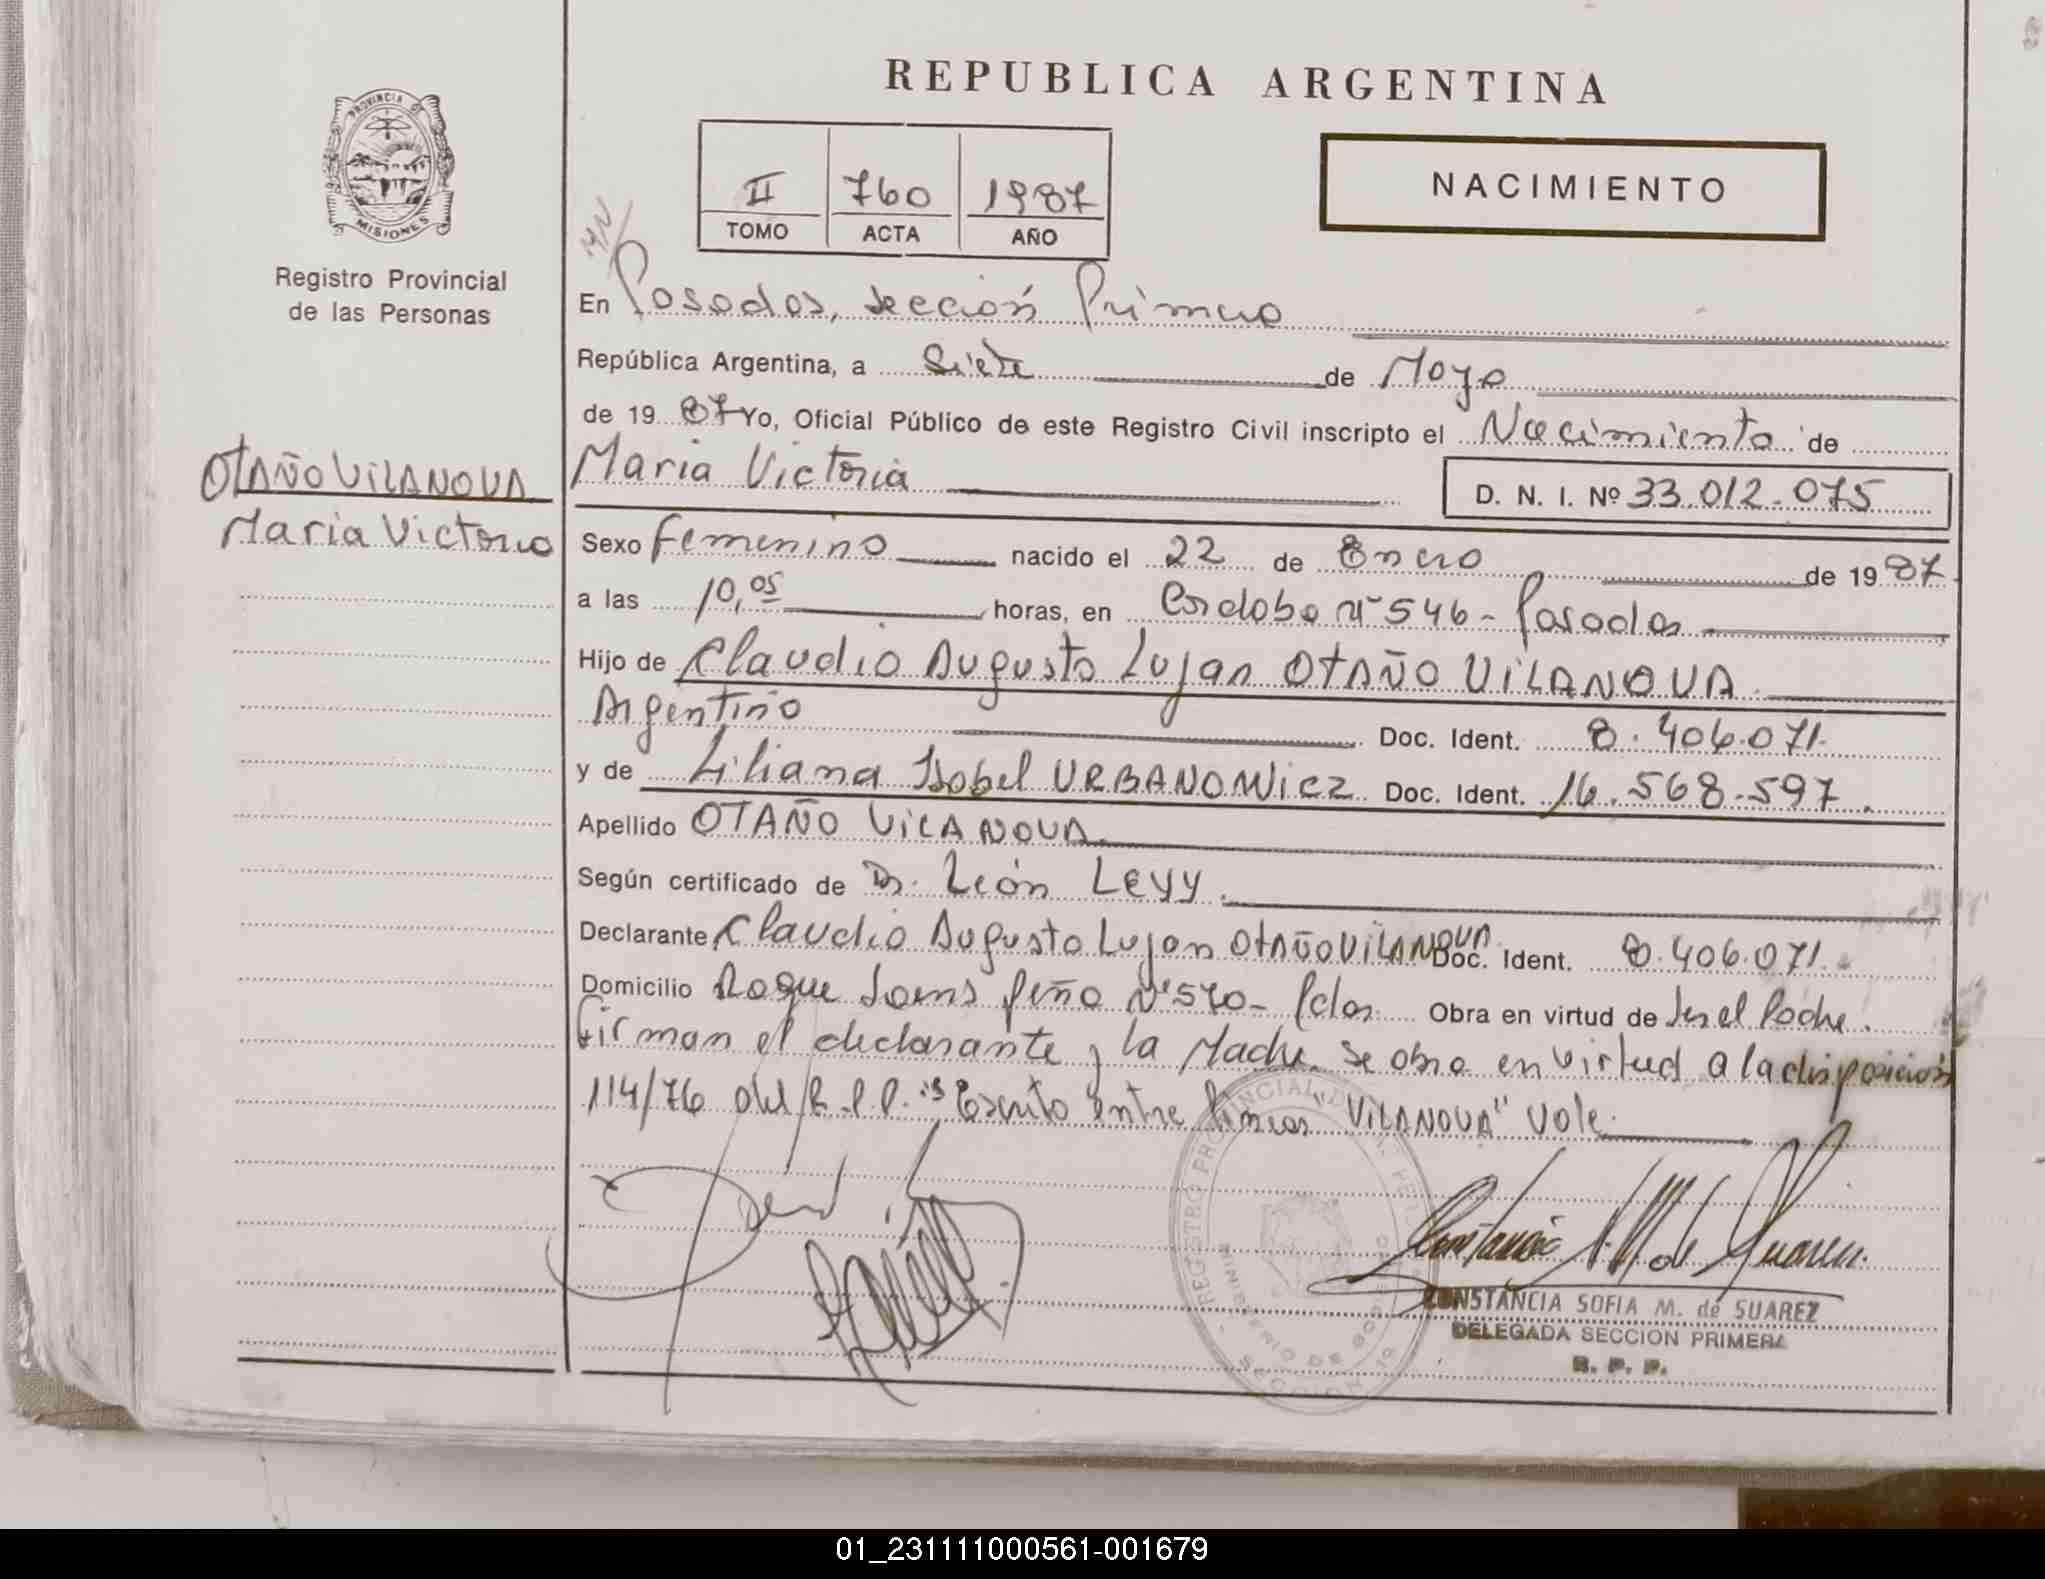 REPUBLICA ARGENTINA
PROVINCIA DE
MISIONES
Registro Provincial
de las Personas
II 760 1987
TOMO ACTA AÑO
NACIMIENTO
En Posadas, sección Primera
República Argentina, a Siete de Mayo
de 19 87 Yo, Oficial Público de este Registro Civil inscripto el Nacimiento de
OTAÑO VILANOVA
Maria Victoria
Maria Victoria D. N. I. Nº 33.012.075
Sexo Femenino nacido el 22 de Enero de 19 87
a las 10,05 horas, en Cordoba Nº 546 - Posadas
Hijo de Claudio Augusto Lujan OTAÑO VILANOVA
Argentino Doc. Ident. 8.406.071.
y de Liliana Isabel URBANOWicz Doc. Ident. 16.568.597.
Apellido OTAÑO VILANOVA
Según certificado de Dr. León Levy.
Declarante Claudio Augusto Lujan OTAÑO VILANOVA Doc. Ident. 8.406.071.
Domicilio Roque Saens Peña Nº 570 - Pdas Obra en virtud de Ser el Padre.
Firman el declarante y la Madre. Se obra en virtud a la disposición
114/76 del R.P.P. Escrito entre lineas "VILANOVA" Vale.
REGISTRO PROVINCIAL DE
MINISTERIO DE GOBIERNO
SECCION 1a
CONSTANCIA SOFIA M. de SUAREZ
DELEGADA SECCION PRIMERA
R. P. P.
01_231111000561-001679